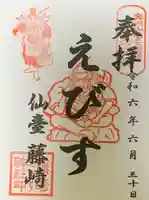 奉拝
令和六年六月三十日
えびす
仙臺
藤崎